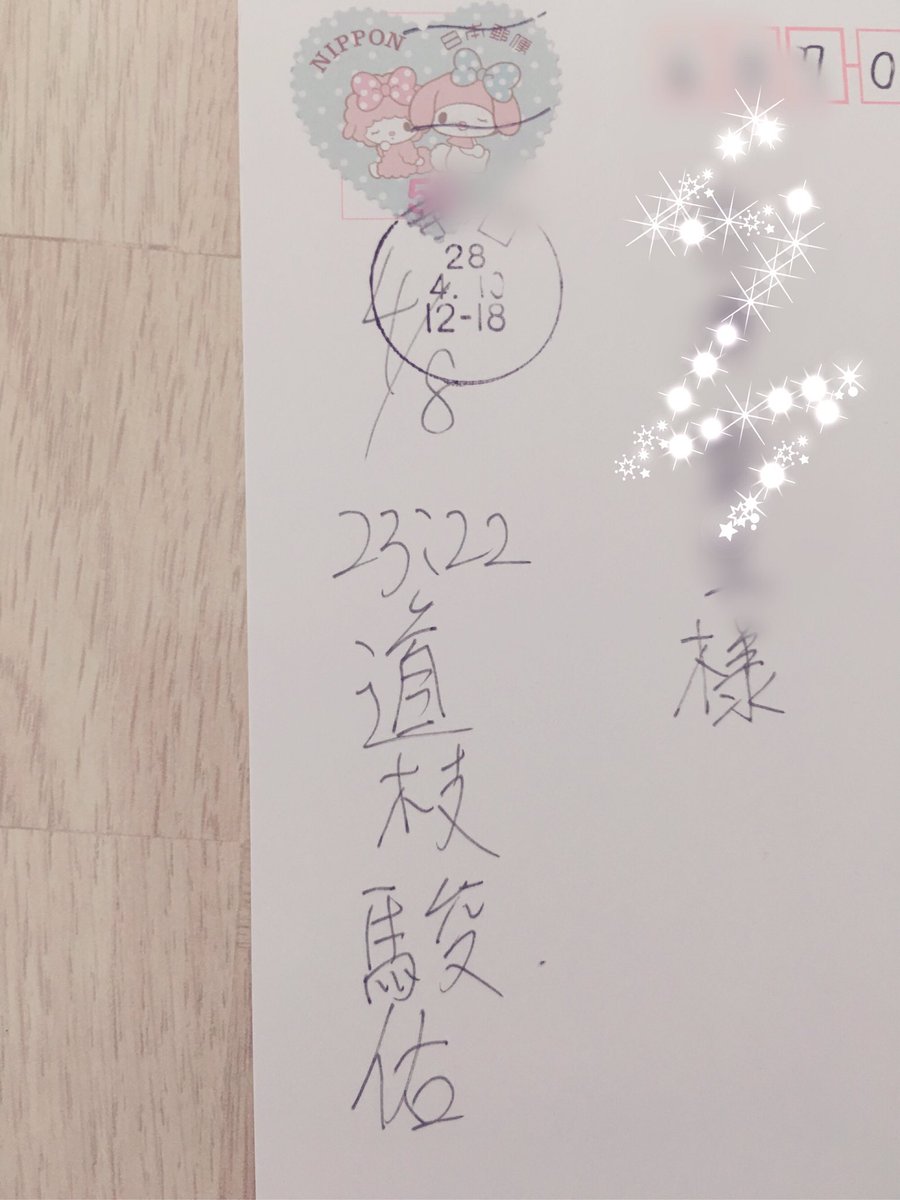 NIPPON 日本郵便
7-0
28
4. 10
12-18
4/8
23:22
道枝
駿佑
様